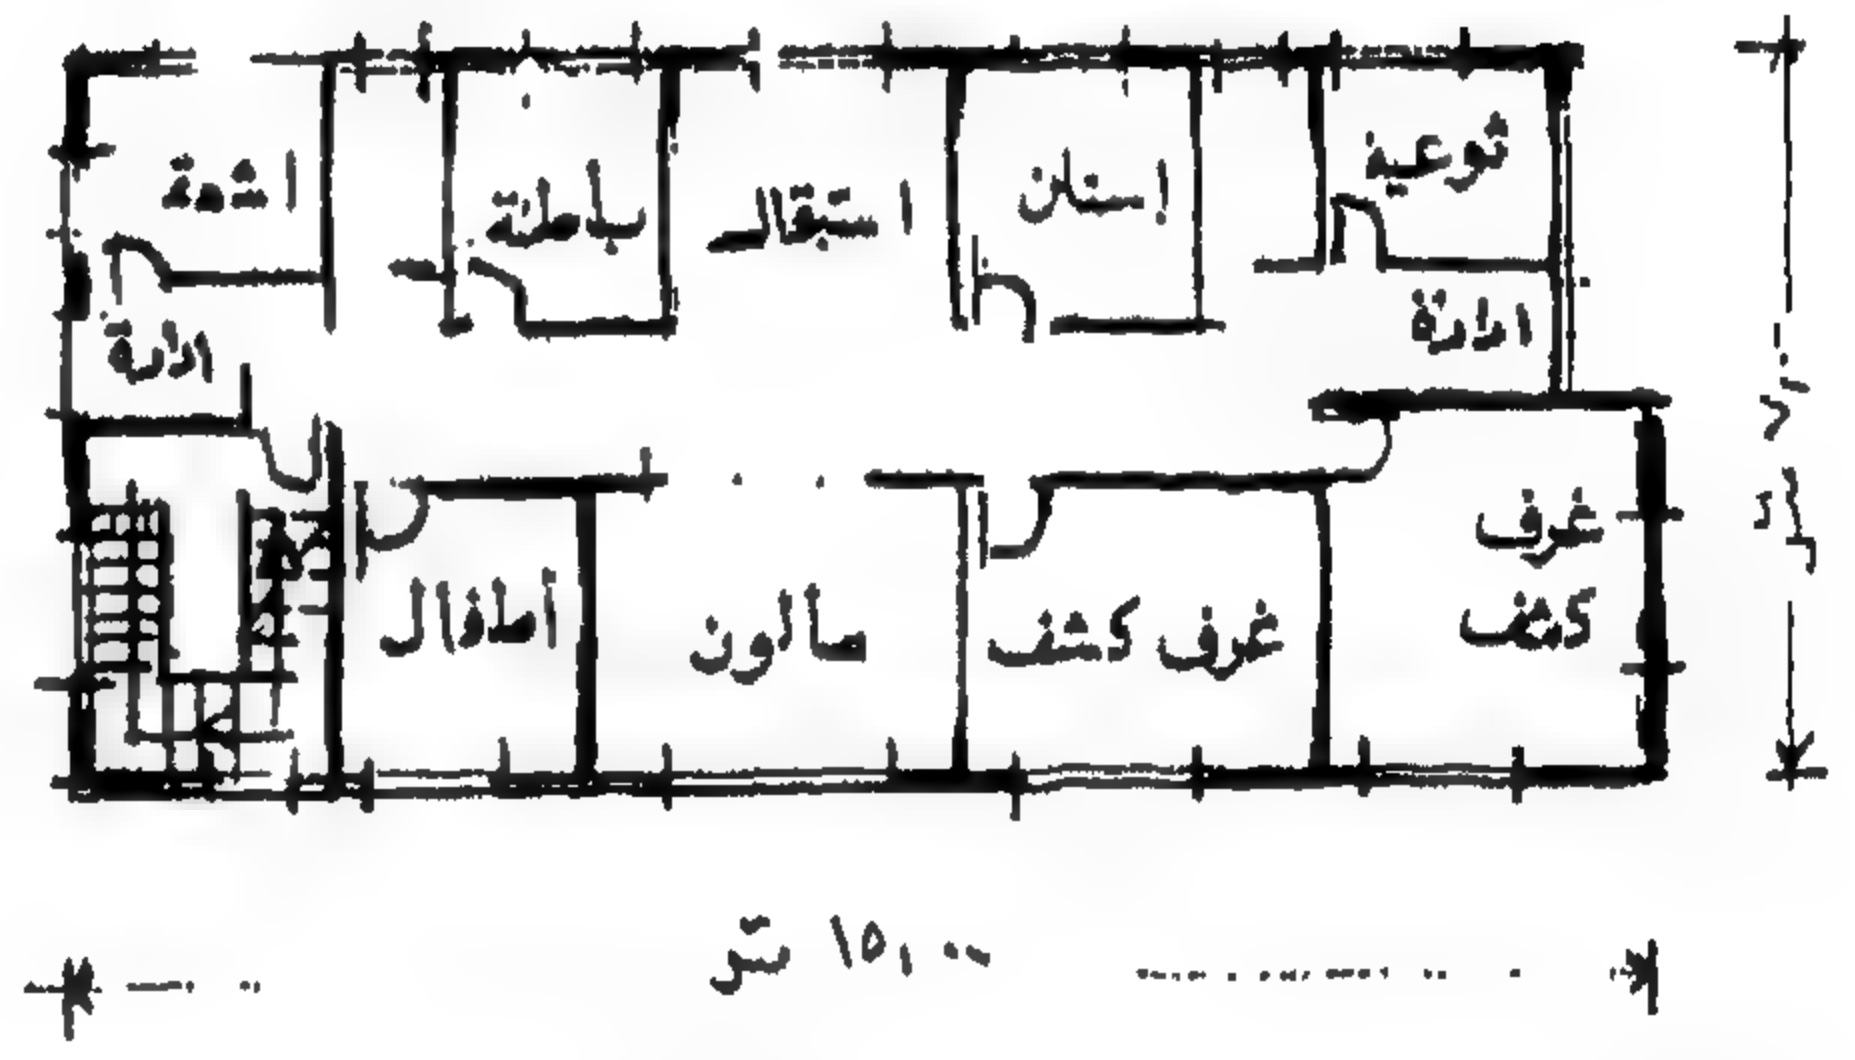 توعية
اسنان
استقبال
باطنة
اشعة
ادارة
ادارة
غرف
كشف
غرف كشف
صالون
أطفال
١٥,٠٠